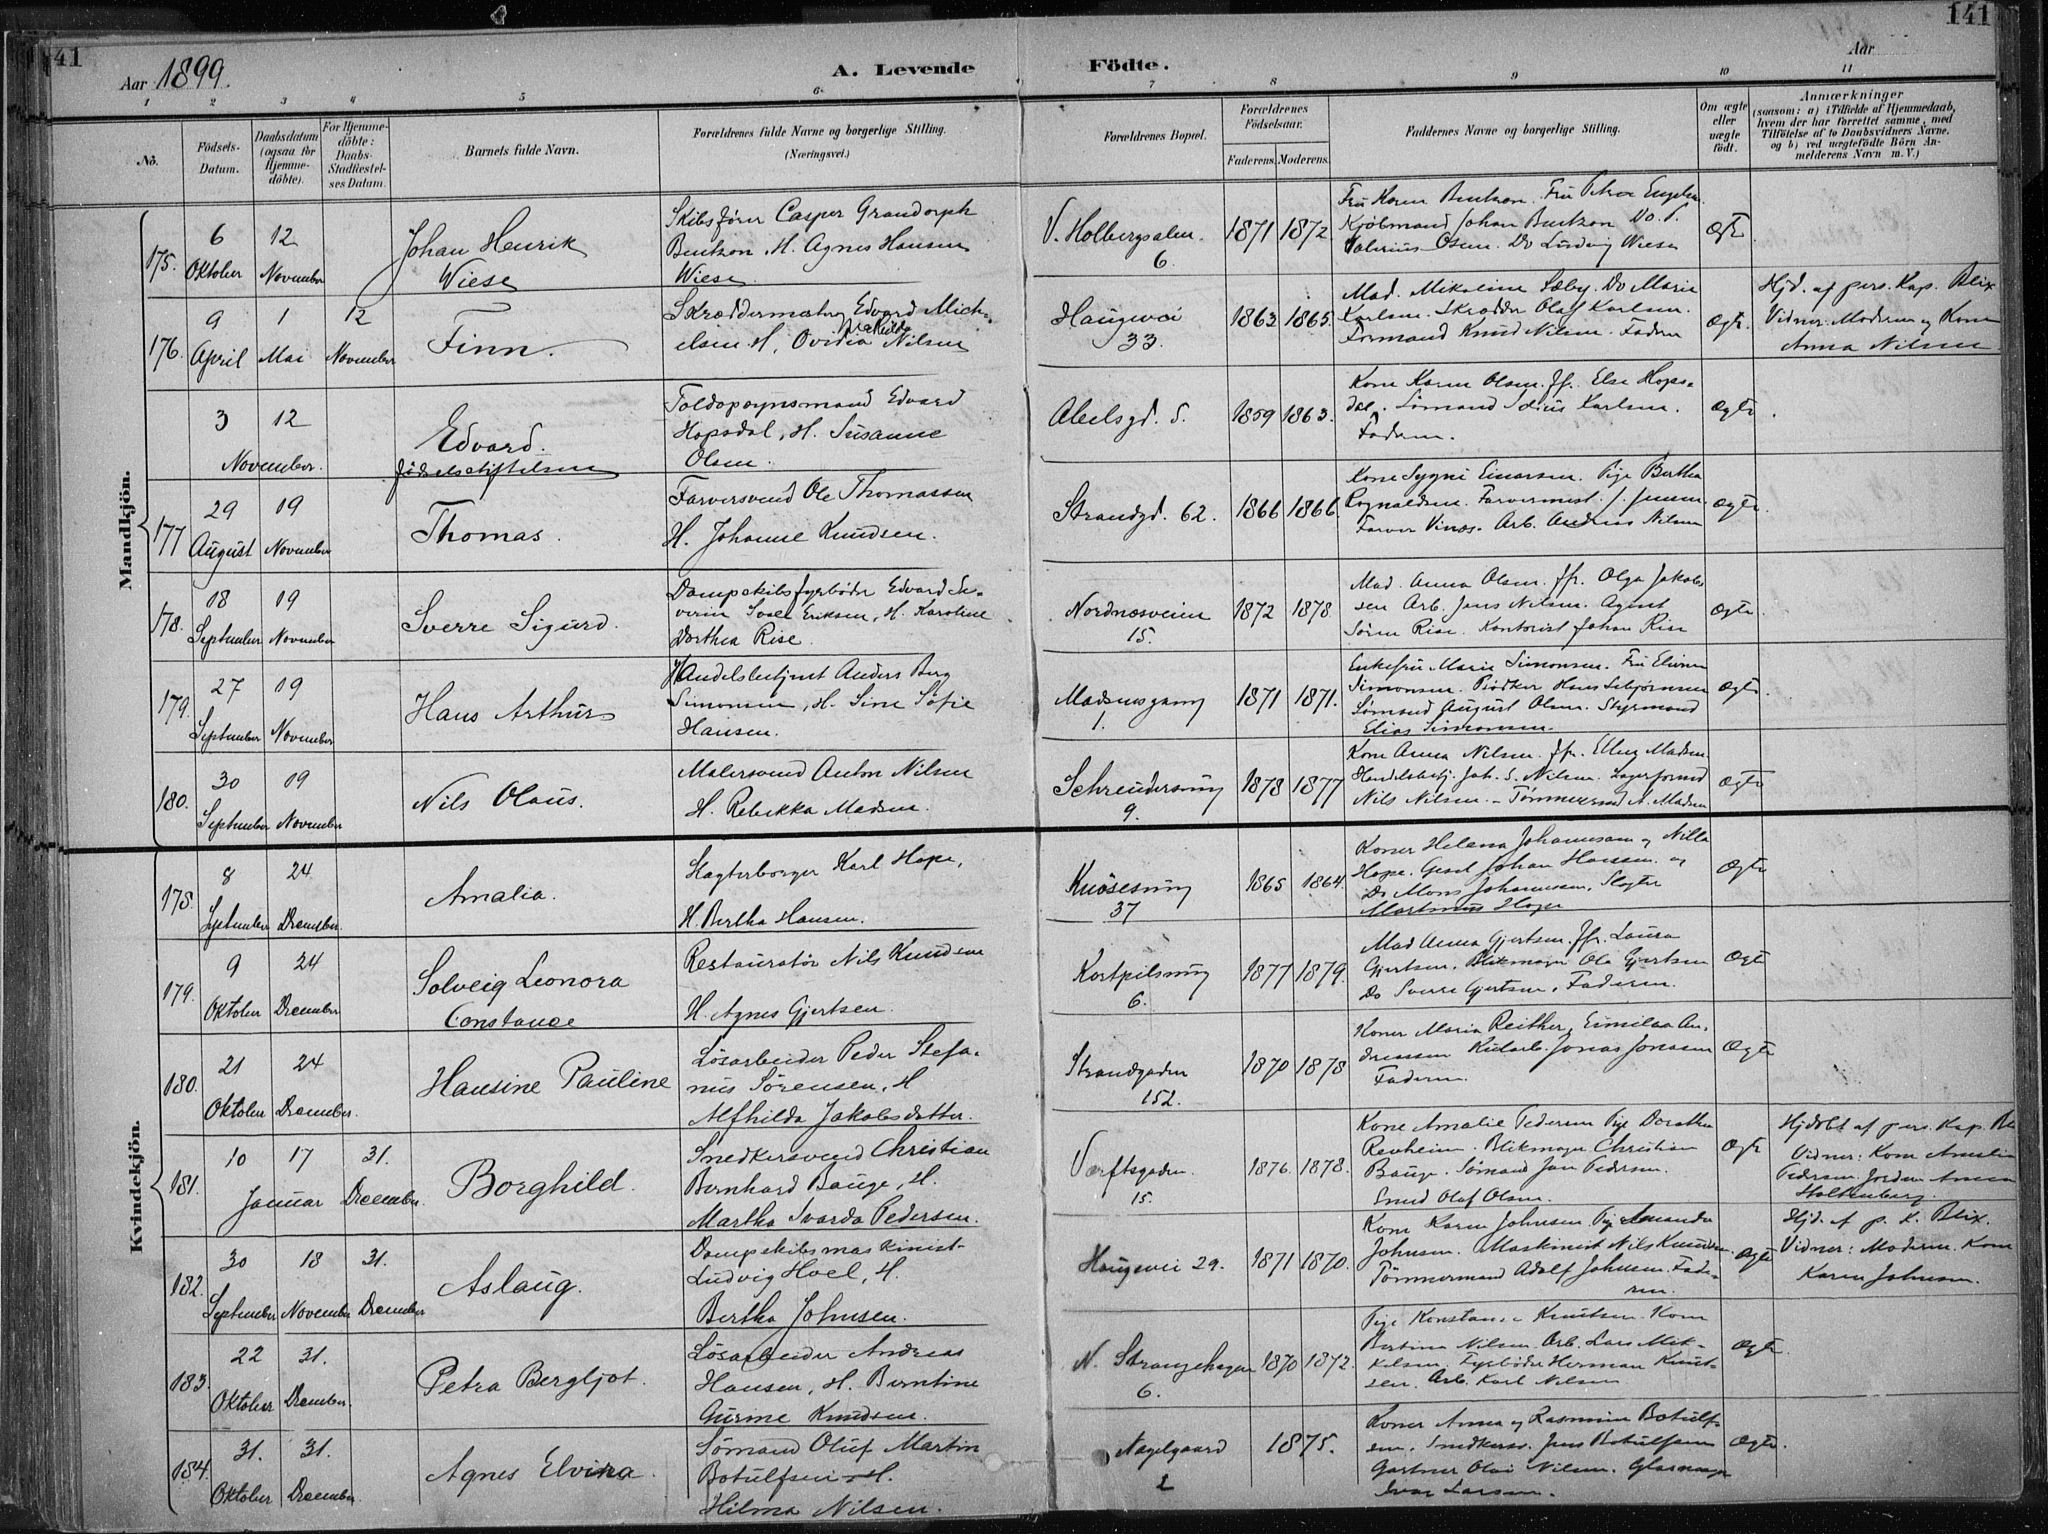 141
141
Aar 1899.
A. Levende Födte.
Aar
1 2 3 4 5 6 7 8 9 10 11
No.
Födsels-Datum.
Daabsdatum (ogsaa for Hjemme-döbte).
For Hjemme-döbte: Daabs-Stadfæstel-ses Datum.
Barnets fulde Navn.
Forældrenes fulde Navne og borgerlige Stilling.
(Næringsvei.)
Forældrenes Bopæl.
Forældrenes Födselsaar.
Faderens. Moderens.
Faddernes Navne og borgerlige Stilling.
Om ægte eller uægte födt.
Anmærkninger
(saasom: a) i Tilfælde af Hjemmedaab,
hvem der har forrettet samme, med
Tilföielse af to Daabsvidners Navne.
og b) ved uægtefödte Börn An-
melderens Navn m. V.)
Mandkjön.
175. 6 Oktober 12 November
Johan Henrik
Wiese
Skibsfører Casper Grandorph
Bentzon, H. Agnes Hansen
Wiese
V. Holbergsalm. 6.
1871 1872.
Fru Karen Bentzon. Fru Petra
Kjøbmand Johan Bentzon Do.
Valerius Olsen. Do Ludvig Wiese
Ægte
176. 9 April 1 Mai 12 November
Finn.
Skræddermester Edvard Mich-
elsen H. Ovidia Mathilde Nilsen
Haugevei 33.
1863 1865.
Mad. Mikoline Sæby. Do Marie
Karlsen. Skrædder Olaf Karlsen.
Formand Knud Nilsen. Faderen
Ægte.
Hjd. af pers. Kap. Blix
Vidner: Moderen og Kone
Anna Nilsen
3 12 November.
Edvard.
fødselsstiftelsen
Toldopsynsmand Edvard
Hopsdal, H. Susanne
Olsen.
Abelsgd. 5.
1859 1863.
Kone Karen Olsen. Jf. Else Hops-
dal. Sømand Karlsen.
Faderen.
Ægte
177 29 August 19 November
Thomas.
Farversvend Ole Thomassen
H. Johanne Knudsen.
Strandgd. 62.
1866 1866.
Kone Sygni Einarsen. Pige Bertha
Rognaldsen. Farvermest. J. Jensen
Farver Vinæs. Arb. Andreas Nilsen
Ægte.
178. 18 September 19 November
Sverre Sigurd.
Dampskibsfyrbøder Edvard Se-
verin Eriksen, H. Karoline
Dorthea Rise.
Nordnæsveien 15.
1872 1878.
Mad. Anna Olsen. Jfr. Olga Jakob-
sen Arb. Jens Nilsen. Agent
Sören Rise. Kontorist Johan Rise
Ægte.
179. 27 September 19 November
Hans Arthur
Handelsbetjent Anders Berg
Simonsen, H. Sine Sofie
Hansen.
Madamsgang 1.
1871 1871.
Enkefru Marie Simonsen. Fru
Simonsen. Bødker Hans
Sømand August Olsen. Styrmand
Elias Simonsen.
Ægte.
180. 30 September 19 November
Nils Olaus.
Malersvend Anton Nilsen
H. Rebekka Madsen.
Schreudersmug 9.
1878 1877
Kone Anna Nilsen. Jfr. Elling Madsen
Handelsbetj. Joh. S. Nilsen. Lagerformd
Nils Nilsen. - Tømmermd A. Madsen
Ægte
Kvindekjön.
178. 8 September 24 December
Amalia.
Slagterborger Karl Hope,
H. Bertha Hansen.
Knøsesmug 37
1865 1864.
Koner Helena Johannesen og Nilla
Hope. Gesel Johan Hansen og
Do Mons Johannesen, Slagter
Martinus Hope
Ægte
179. 9 Oktober 24 December
Solveig Leonora
Constance
Restauratør Nils Knudsen
H. Agnes Gjertsen.
Kortpilsmug 6.
1877 1879.
Mad Anna Gjertsen. Jfr. Laura
Gjertsen. Blikmager Ole Gjertsen
Do Sverre Gjertsen. Faderen.
Ægte
180. 21 Oktober 24 December.
Hansine Pauline
Løsarbeider Peder Stefa-
nus Sørensen, H
Alfhilda Jakobsdatter.
Strandgaden 152.
1870 1878
Koner Maria Reither, Emilaa An-
dreassen Kularb. Jonas Jonassen
Faderen.
Ægte
181. 10 17 Januar 31. December.
Borghild.
Snedkersvend Christian
Bernhard Bauge, H.
Martha Svarda Pedersen.
Værftsgaden 15.
1876. 1878.
Kone Amalie Pedersen Pige Dorothea
Revheim. Blikmager Christian
Bauge. Sømand Jan Pedersen.
Smed Olaf Olsen.
Ægte
Hjdøbt af pers. Kap. Bl
Vidner: Kone Amalia
Pedersen. Jordem Anna
Holtenberg.
182. 30 September 18 November 31. December
Aslaug.
Dampskibsmaskinist
Ludvig Hoel, H.
Bertha Johnsen.
Haugevei 29.
1871 1870.
Kone Karen Johnsen. Pige Amanda
Johnsen. Maskinist Nils Knudsen.
Tömmermand Adolf Johnsen. Fade-
ren.
Ægte
Hjd. af p. K. Blix.
Vidner: Moderen. Kone
Karen Johnsen.
183. 22 Oktober 31. December.
Petra Bergljot.
Løsarbeider Andreas
Hansen, H. Berntine
Gurine Knudsen.
N. Strangehagen 6.
1870 1872.
Pige Konstanse Knutsen. Kone
Bertine Nilsen. Arb. Lars Mik-
kelsen. Fyrbøder Herman Knut-
sen. Arb. Karl Nilsen
Ægte.
184. 31. Oktober 31. December
Agnes Elvina.
Sømand Oluf Martin
Botulfsen H.
Hilma Nilsen.
Nagelgaard 2
1875.
Koner Anna og Rasmine Botulf-
sen. Snedkersv. Jens Botulfsen
Gartner Olai Nilsen. Glarmager
Ivar Larsen.
Ægte.